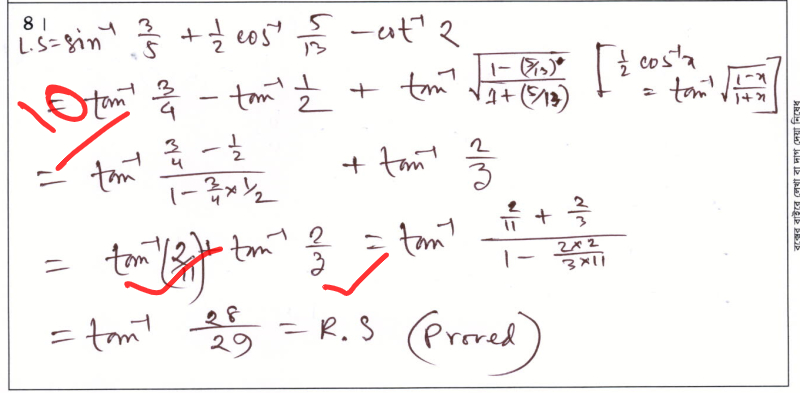 8|
L.S = sin⁻¹ 3/5 + 1/2 cos⁻¹ 5/13 - cot⁻¹ 2
= tan⁻¹ 3/4 - tan⁻¹ 1/2 + tan⁻¹ √((1 - (5/13))/(1 + (5/13))) [1/2 cos⁻¹x = tan⁻¹ √((1-x)/(1+x))]
10
= tan⁻¹ (3/4 - 1/2)/(1 - 3/4 × 1/2) + tan⁻¹ 2/3
= tan⁻¹(2/11) + tan⁻¹ 2/3 = tan⁻¹ (2/11 + 2/3)/(1 - (2×2)/(3×11))
= tan⁻¹ 28/29 = R.S (Proved)
বক্সের বাইরে লেখা বা দাগ দেয়া নিষেধ